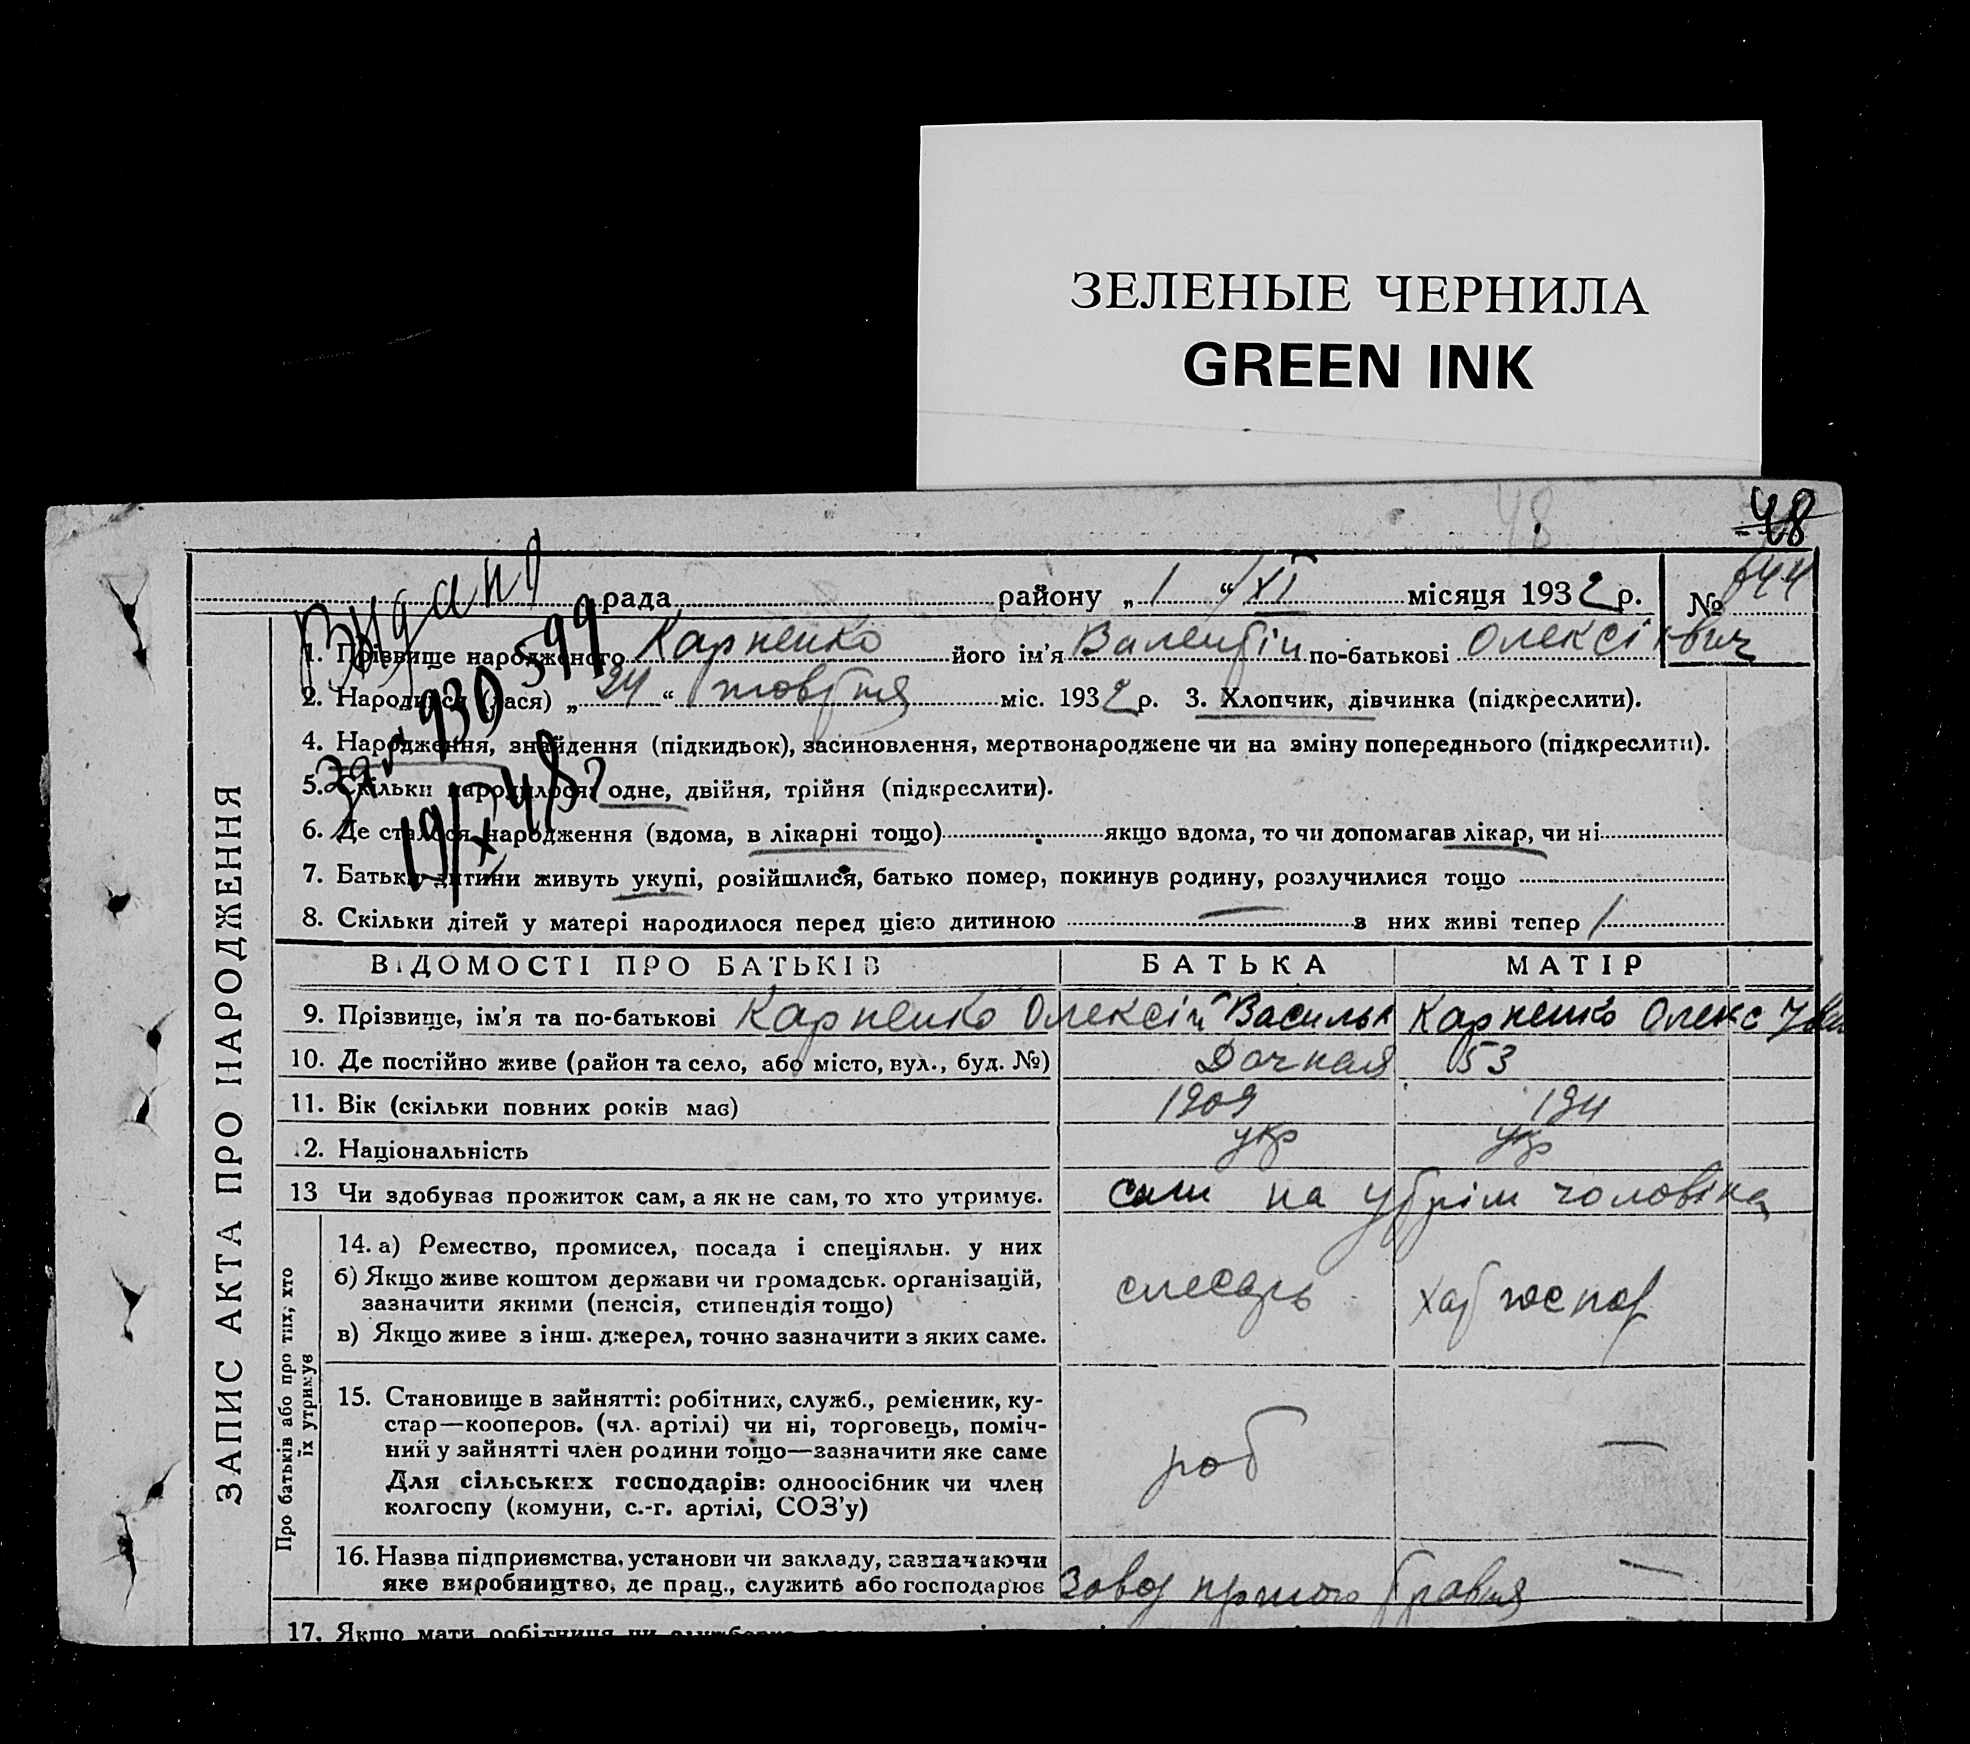 ЗЕЛЕНЫЕ ЧЕРНИЛА
GREEN INK
48
48
рада району „1“ XI місяця 1932 р. № 644
1. Прізвище народженого Карпенко його ім’я Валентін по-батькові Олексієвич
2. Народився (лася) „24“ жовтня міс. 1932 р. 3. Хлопчик, дівчинка (підкреслити).
4. Народження, знайдення (підкидьок), засиновлення, мертвонароджене чи на зміну попереднього (підкреслити).
5. Скільки народилося: одне, двійня, трійня (підкреслити).
6. Де сталося народження (вдома, в лікарні тощо) якщо вдома, то чи допомагав лікар, чи ні
7. Батьки дитини живуть укупі, розійшлися, батько помер, покинув родину, розлучилися тощо
8. Скільки дітей у матері народилося перед цією дитиною — з них живі тепер 1
Видано
599
930
19/X 48
ЗАПИС АКТА ПРО НАРОДЖЕННЯ
ВІДОМОСТІ ПРО БАТЬКІВ БАТЬКА МАТІР
9. Прізвище, ім’я та по-батькові Карпенко Олексій Васильк Карпенко Олекс
10. Де постійно живе (район та село, або місто, вул., буд. №) Дачная 53
11. Вік (скільки повних років має) 1909
12. Національність укр укр
13 Чи здобуває прожиток сам, а як не сам, то хто утримує. сам на утрім чоловіка
Про батьків або про тих, хто їх утримує
14. а) Ремество, промисел, посада і спеціяльн. у них
б) Якщо живе коштом держави чи громадськ. організацій,
зазначити якими (пенсія, стипендія тощо) слесарь хат госпор
в) Якщо живе з інш. джерел, точно зазначити з яких саме.
15. Становище в зайнятті: робітник, служб., ремісник, ку-
стар—кооперов. (чл. артілі) чи ні, торговець, поміч-
ний у зайнятті член родини тощо—зазначити яке саме роб —
Для сільських господарів: одноосібник чи член
колгоспу (комуни, с.-г. артілі, СОЗ’у)
16. Назва підприємства, установи чи закладу, зазначаючи
яке виробництво, де прац., служить або господарює Завод —
17. Якщо мати робітниця чи службовка